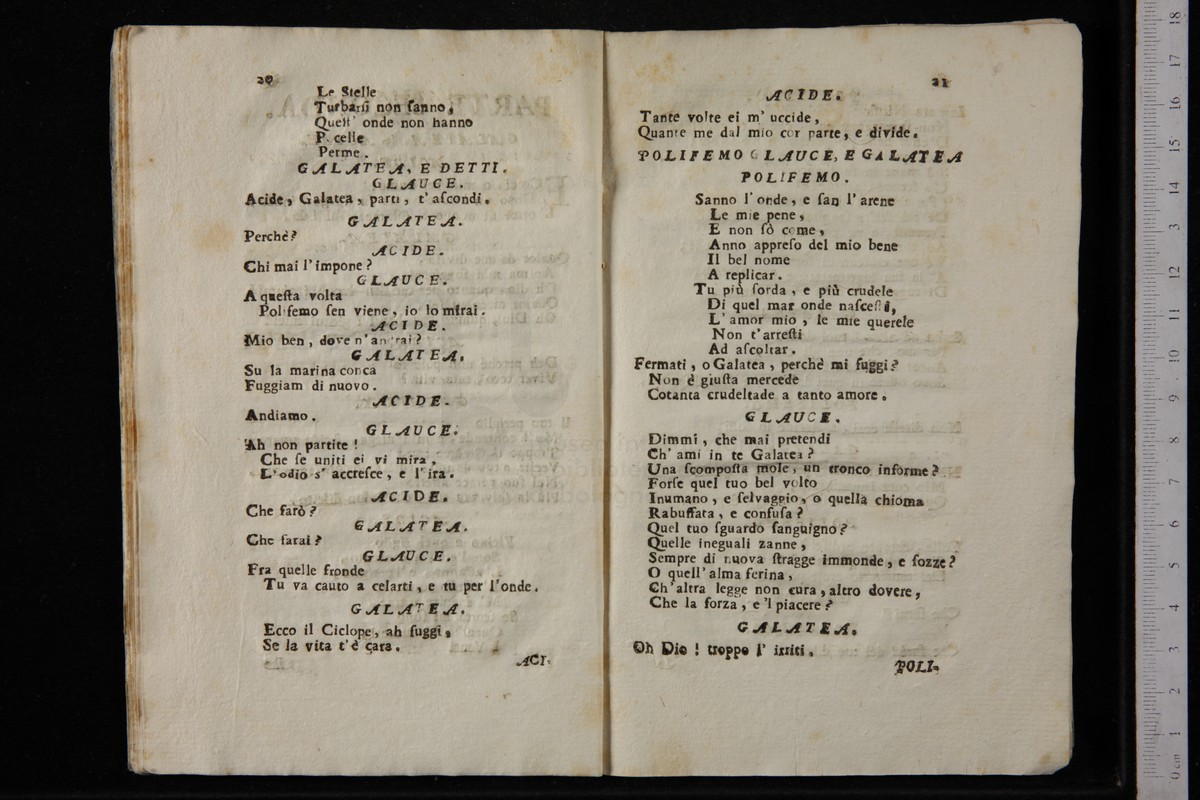 20
Le Stelle
Turbarſi non ſanno,
Quell' onde non hanno
P. celle
Perme.
GALATEA, E DETTI.
GLAUCE.
Acide, Galatea, parti, t' aſcondi.
GALATEA.
Perchè?
ACIDE.
Chi mai l' impone?
GLAUCE.
A queſta volta
Polifemo ſen viene, io lo mirai.
ACIDE.
Mio ben, dove n' andrai?
GALATEA.
Su la marina conca
Fuggiam di nuovo.
ACIDE.
Andiamo.
GLAUCE.
Ah non partite!
Che ſe uniti ei vi mira,
L' odio s' accreſce, e l' ira.
ACIDE.
Che farò?
GALATEA.
Che farai?
GLAUCE.
Fra quelle fronde
Tu va cauto a celarti, e tu per l'onde.
GALATEA.
Ecco il Ciclope, ah fuggi,
Se la vita t' è cara.
ACI-
21
ACIDE.
Tante volte ei m' uccide,
Quante me dal mio cor parte, e divide.
POLIFEMO GLAUCE, E GALATEA
POLIFEMO.
Sanno l' onde, e ſan l' arene
Le mie pene,
E non ſò come,
Anno appreſo del mio bene
Il bel nome
A replicar.
Tu più ſorda, e più crudele
Di quel mar onde naſceſti,
L' amor mio, le mie querele
Non t' arreſti
Ad aſcoltar.
Fermati, o Galatea, perchè mi fuggi?
Non è giuſta mercede
Cotanta crudeltade a tanto amore.
GLAUCE.
Dimmi, che mai pretendi
Ch' ami in te Galatea?
Una ſcompoſta mole, un tronco informe?
Forſe quel tuo bel volto
Inumano, e ſelvaggio, o quella chioma
Rabuffata, e confuſa?
Quel tuo ſguardo ſanguigno?
Quelle ineguali zanne,
Sempre di nuova ſtragge immonde, e ſozze?
O quell' alma ferina,
Ch' altra legge non cura, altro dovere,
Che la forza, e 'l piacere?
GALATEA.
Oh Dio! troppo l' irriti.
POLI-
0 cm 1 2 3 4 5 6 7 8 9 10 11 12 13 14 15 16 17 18